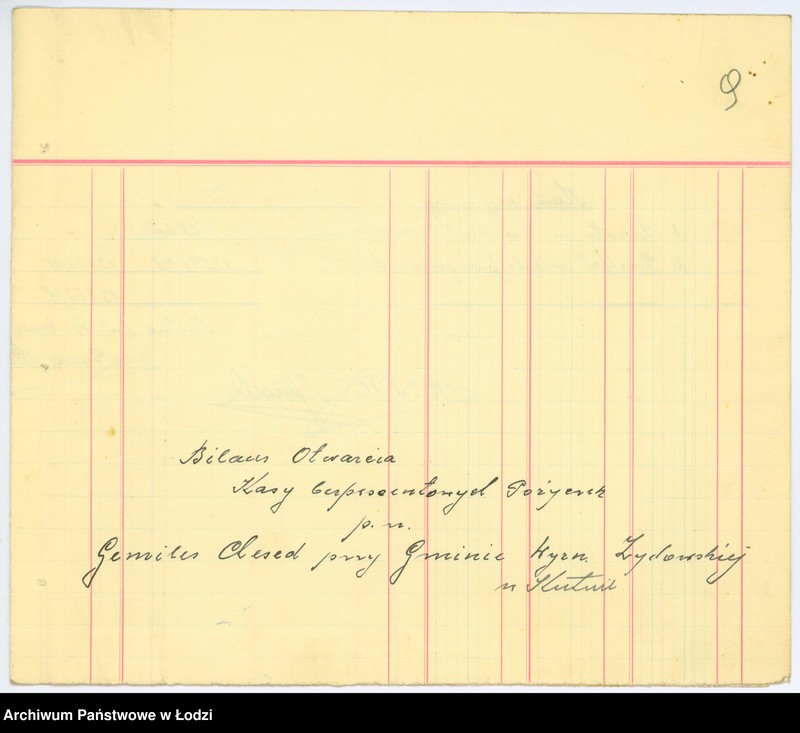 9
Bilans Otwarcia
Kasy bezprocentowych Pożyczek
p. n.
Gemiles Chesed przy Gminie Wyzn. Żydowskiej
w Kutnie
Archiwum Państwowe w Łodzi